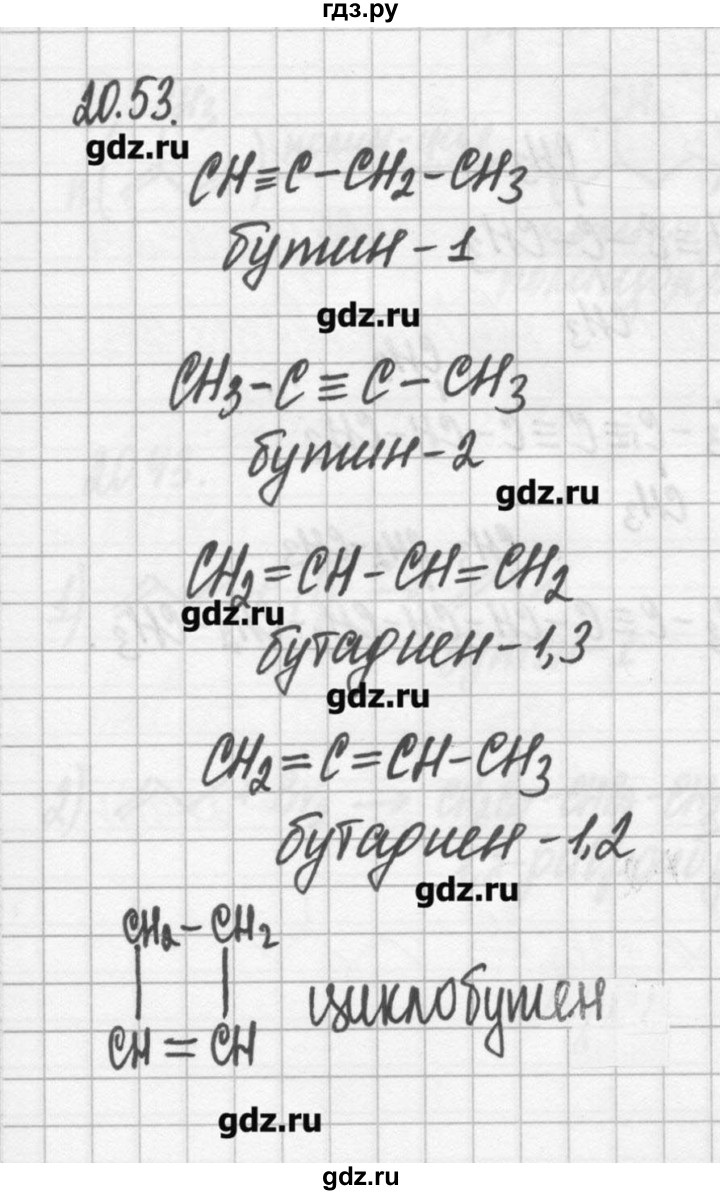 гдз.ру
20.53.
gdz.ru
CH≡C-CH2-CH3
бутин-1
gdz.ru
CH3-C≡C-CH3
бутин-2
gdz.ru
CH2=CH-CH=CH2
gdz.ru
бутадиен-1,3
gdz.ru
CH2=C=CH-CH3
бутадиен-1,2
gdz.ru
CH2-CH2
CH=CH
циклобутен
gdz.ru
gdz.ru